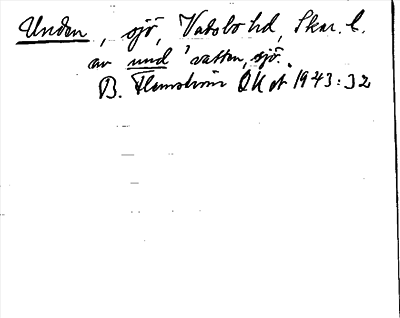 Unden, sjö, Vadsbo hd, Skar. l.
av und 'vatten, sjö'.
B. Hemström OUÅ 1943:32